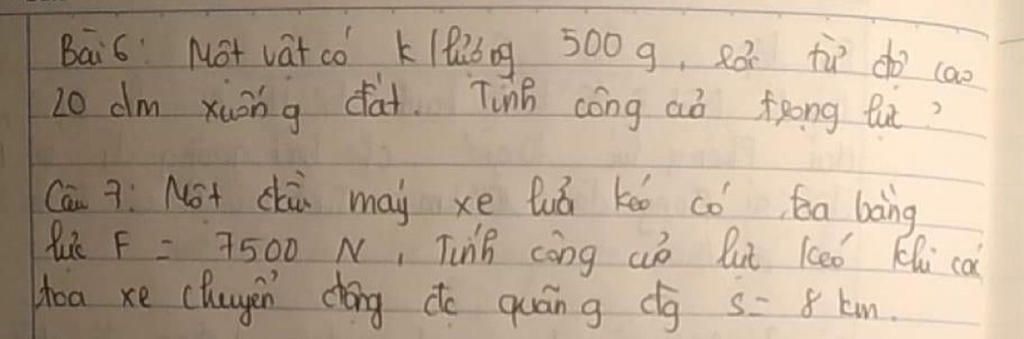 Bài 6: Một vật có k lượng 500 g, rơi từ độ cao
20 dm xuống đất. Tính công củả trọng lực ?
Câu 7: Một đầu máy xe lửa kéo có toa bằng
lực F = 7500 N, Tính công củả lực kéo khi các
toa xe chuyển động đc quãng đg s = 8 km.